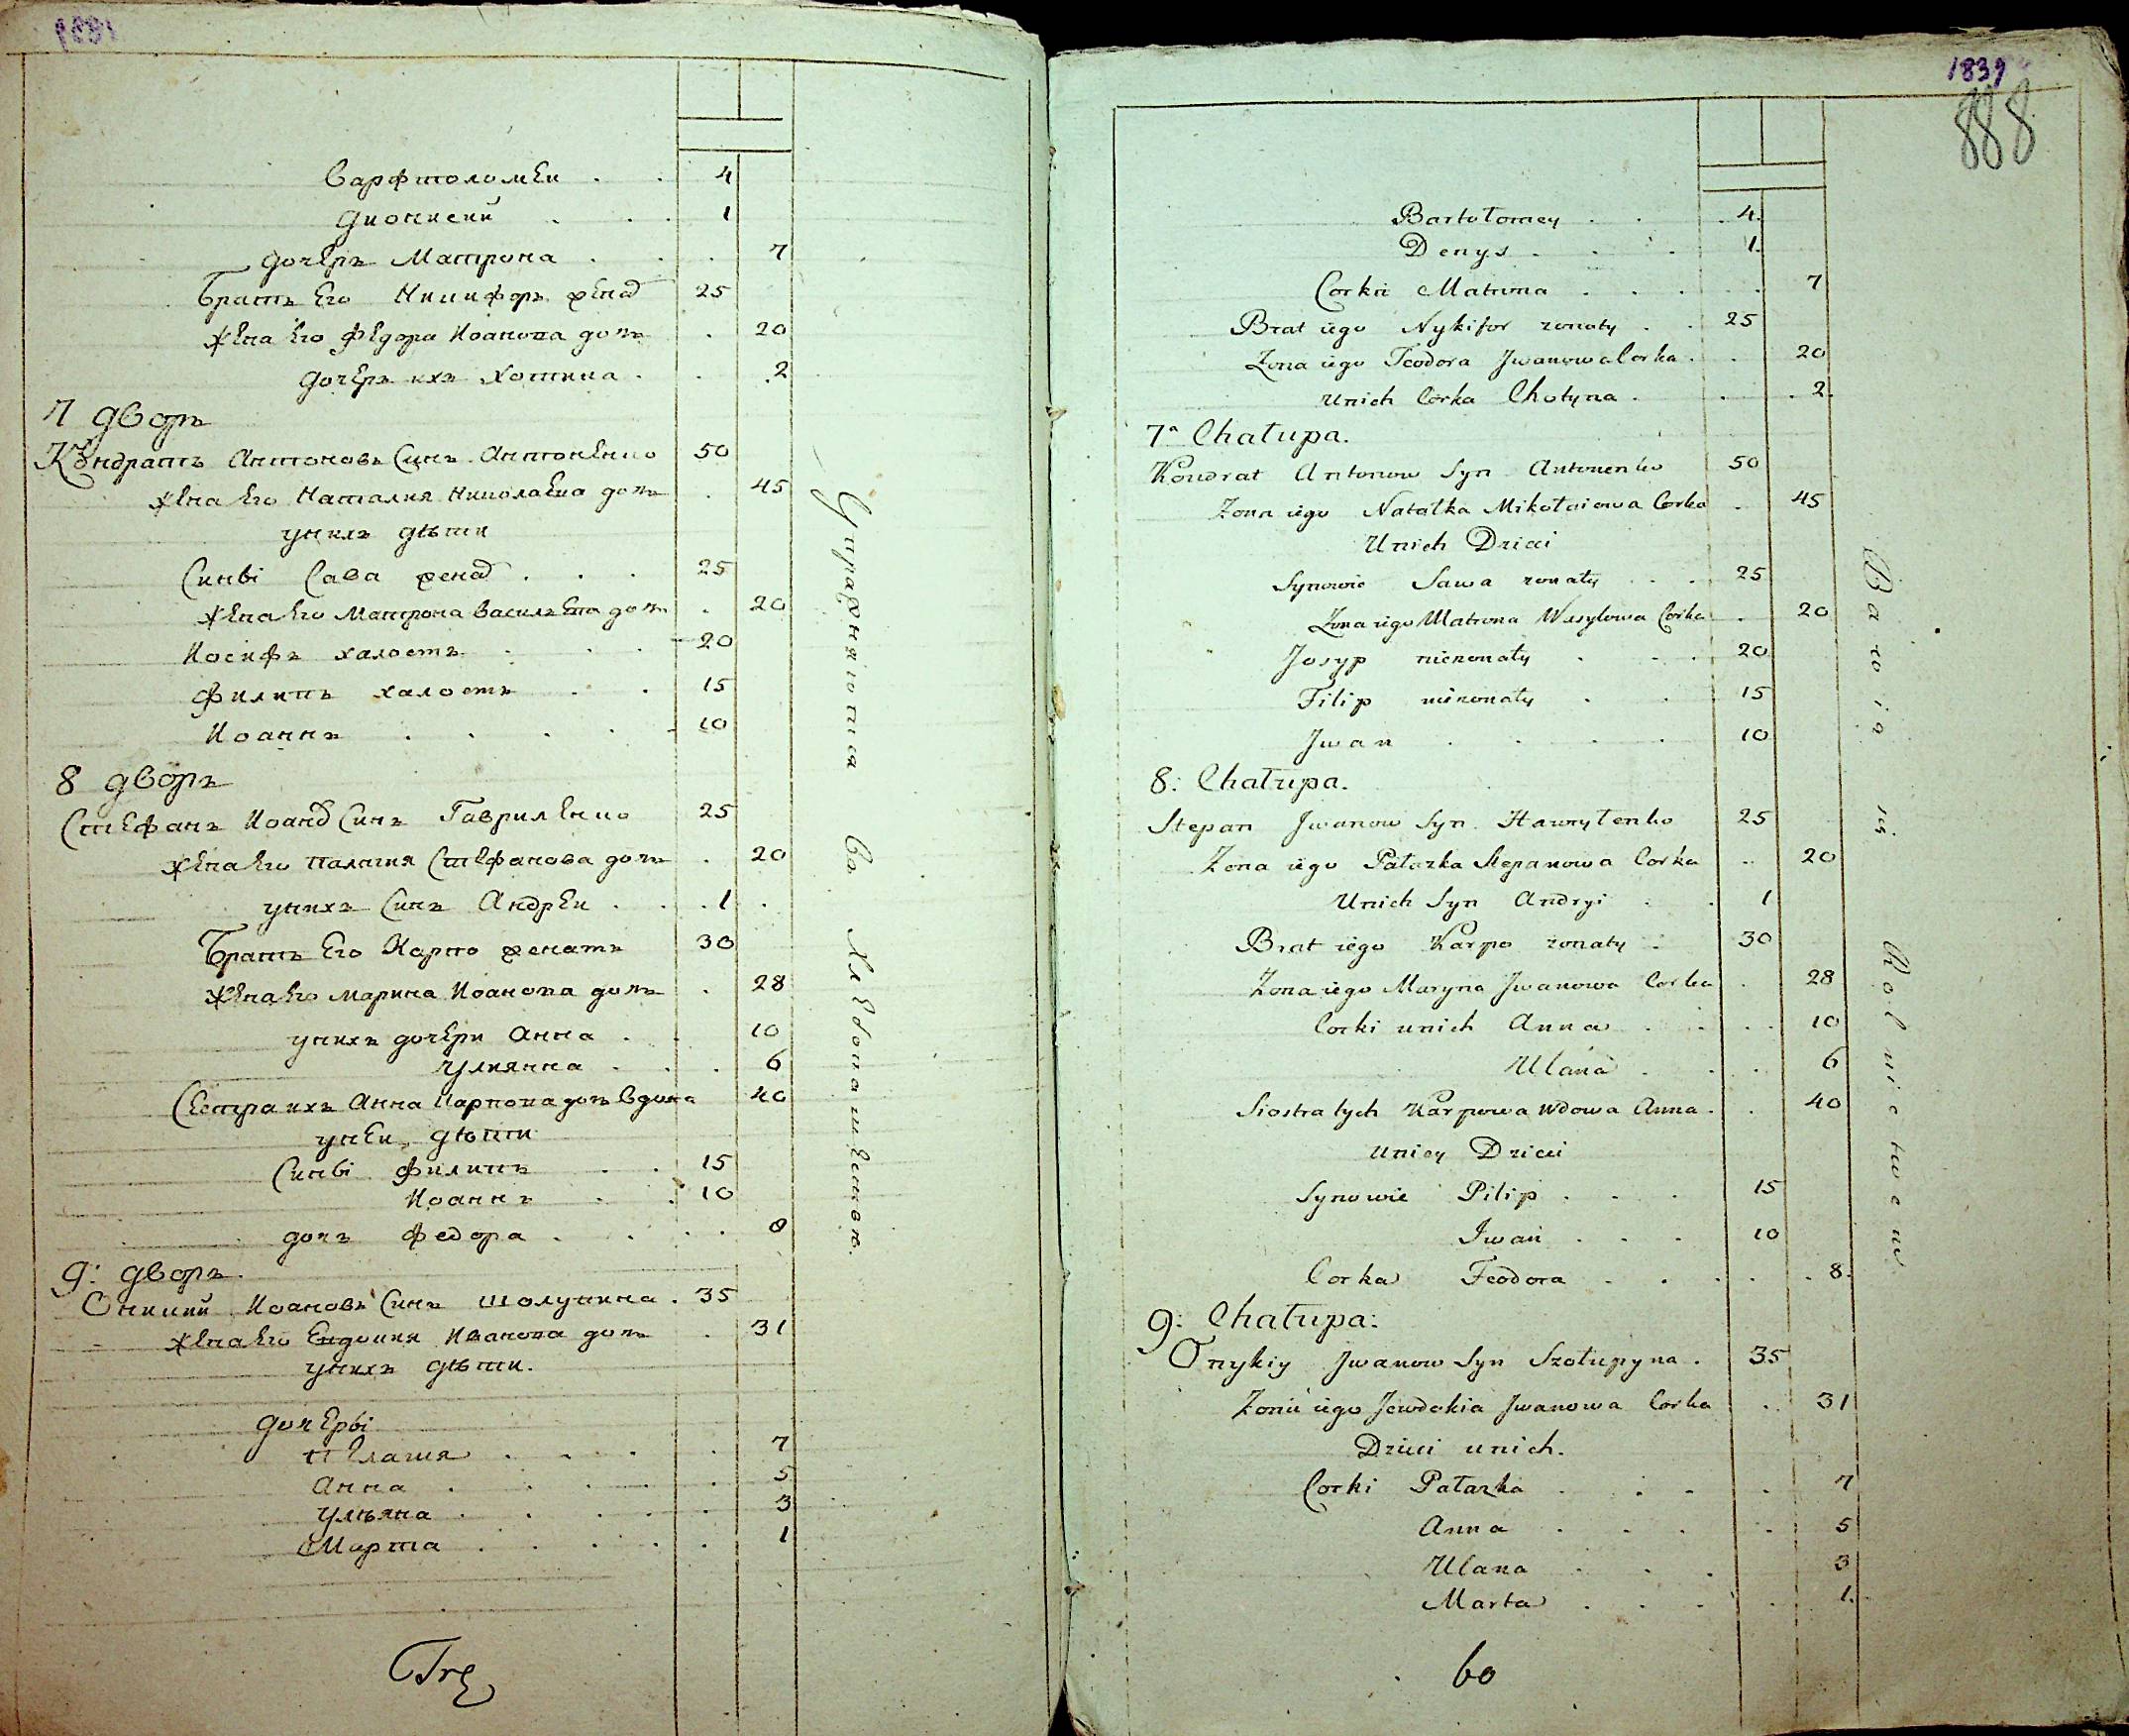 Варфтоломеи . . 4
Дионисий . . . 1
дочеръ Матрона . . . 7
Братъ Его Никифоръ женад 25
жена Его Федора Иоанова дочъ . 20
дочеръ ихъ Хотина . . . 2
7 дворъ
Кондратъ Антоновъ Синъ Антоненко 50
жена Его Наталия Николаева дочъ . 45
унихъ дѣти
Синві Сава женад . . . 25
жена Его Матрона Василева дочъ . 20
Иосифъ халостъ . . . 20
Филипъ халостъ . . 15
Иоаннъ . . . . . 10
8 дворъ
Стефанъ Иоанд Синъ Гавриленко 25
жена Его Палагия Стефанова дочъ . 20
унихъ Синъ Андреи . . . 1 .
Братъ Его Карпо женатъ 30
жена Его Марина Иоанова дочъ . 28
унихъ дочери Анна . . 10
Улиянна . . . 6
Сестра ихъ Анна Карпова дочъ вдова 40
унеи дѣти
Синві Филипъ . . 15
Иоаннъ . . 10
дочъ Федора . . . . 8
9: дворъ.
Оникий Иоановъ Синъ Шолупина . 35
жена Его Евдокия Иванова дочъ . 31
унихъ дѣти.
дочері
Пелагия . . . . 7
Анна . . . . 5
Ульяна . . . . . 3
Марта . . . . . 1
Упражняются въ Хлебопашенстве.
1839
888
Bartołomey . . . 4.
Denys . . . . 1.
Corka Matrona . . . . . 7
Brat iego Nykifor zonaty . . 25
Zona iego Teodora Jwanowa Corka . . 20
Unich Corka Chotyna . . . 2.
7ª Chałupa.
Kondrat Antonow Syn Antonenko 50
Zona iego Natałka Mikołaiowa Corka . 45
Unich Dzieci
Synowie Sawa zonaty . . . 25
Zona iego Matrona Wasylowa Corka . 20
Josyp niezonaty . . . 20
Filip niezonaty . . 15
Jwan . . . . 10
8: Chałupa.
Stepan Jwanow Syn Hawryłenko 25
Zona iego Pałazka Stepanowa Corka .. 20
Unich Syn Andryi . . 1
Brat iego Karpo zonaty . 30
Zona iego Maryna Jwanowa Corka . 28
Corki unich Anna . . . . 10
Ulana . . . 6
Siostra tych Karpowa Wdowa Anna . . 40
Uniey Dzieci
Synowie Pilip . . . 15
Iwan . . . 10
Corka Feodora . . . . . 8.
9: Chałupa:
Onykiy Jwanow Syn Szołupyna . 35
Zona iego Jewdokia Jwanowa Corka .. 31
Dzieci unich.
Corki Pałazka . . . . 7
Anna . . . . 5
Ulana . . . 3
Marta . . . . 1.
Bawią się Rolnictwem
60